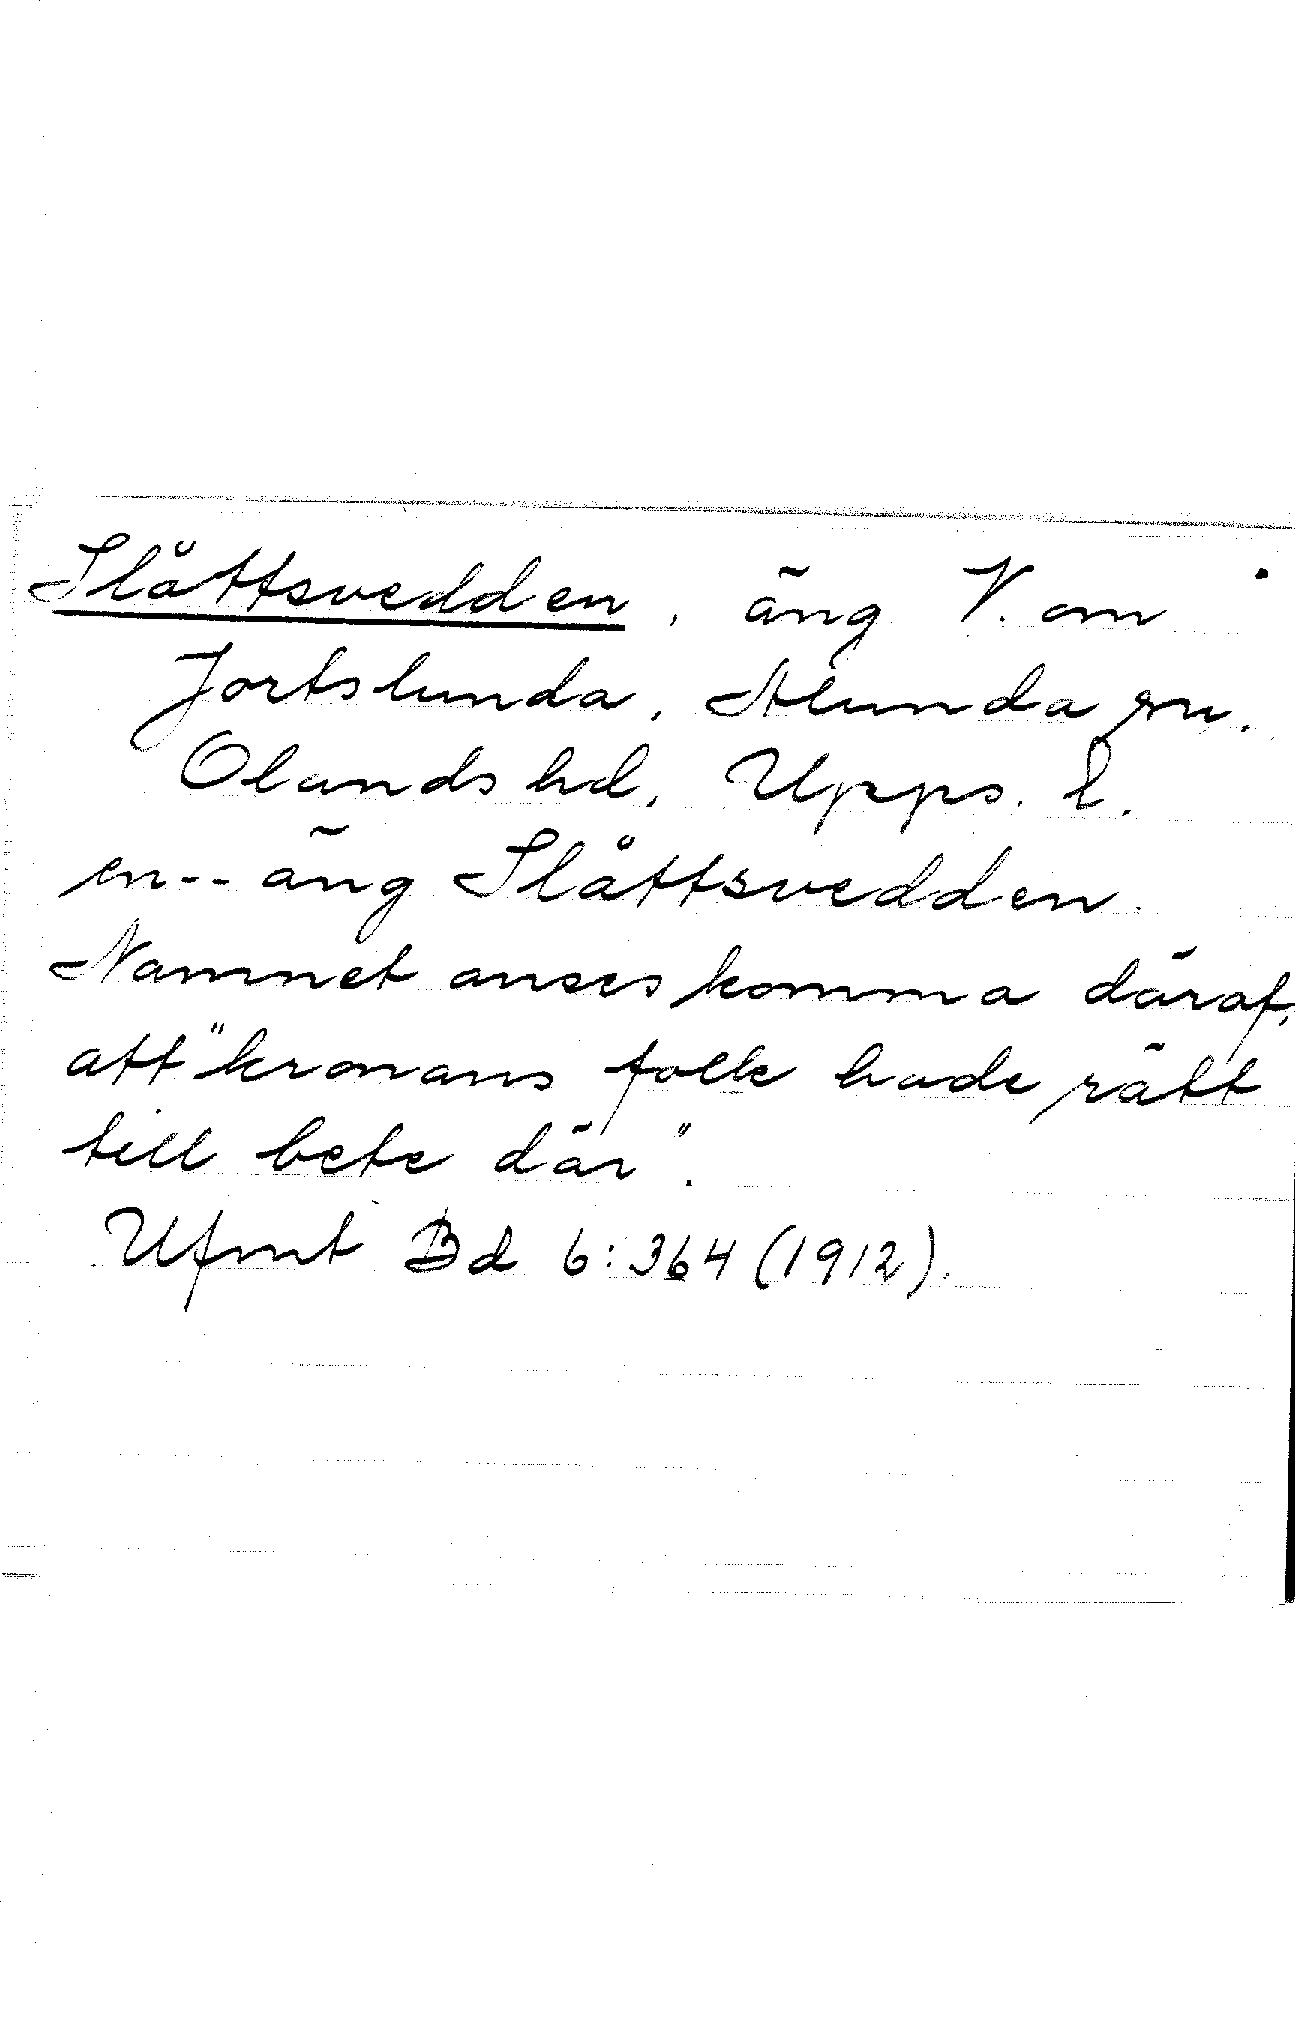 Slåttsvedden, äng V. om
Jortslunda, Alunda sn.
Olands hd, Upps. l.
en-- äng Slåttsvedden.
Namnet anses komma däraf,
att "kronans folk hade rätt
till bete där".
Ufmt Bd 6:364 (1912).